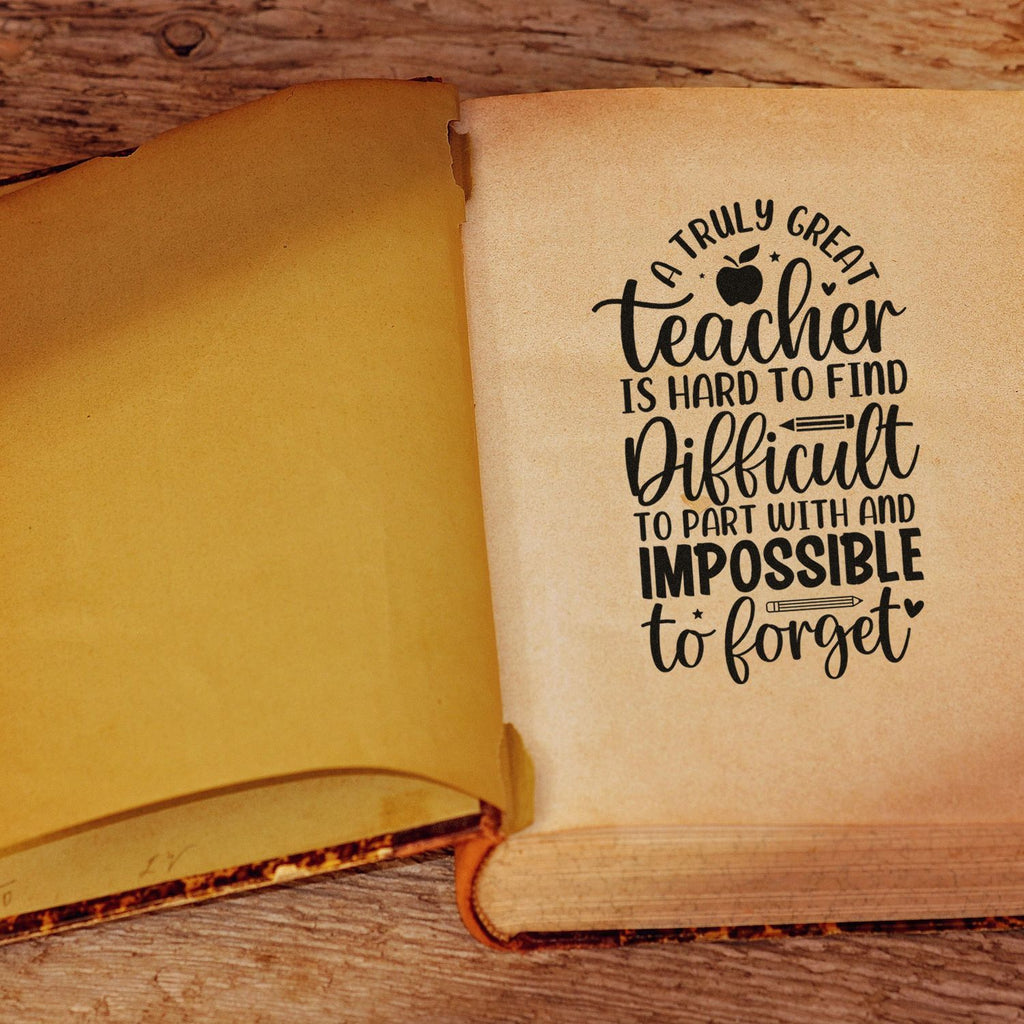 A TRULY GREAT
teacher
IS HARD TO FIND
Difficult
TO PART WITH AND
IMPOSSIBLE
to forget